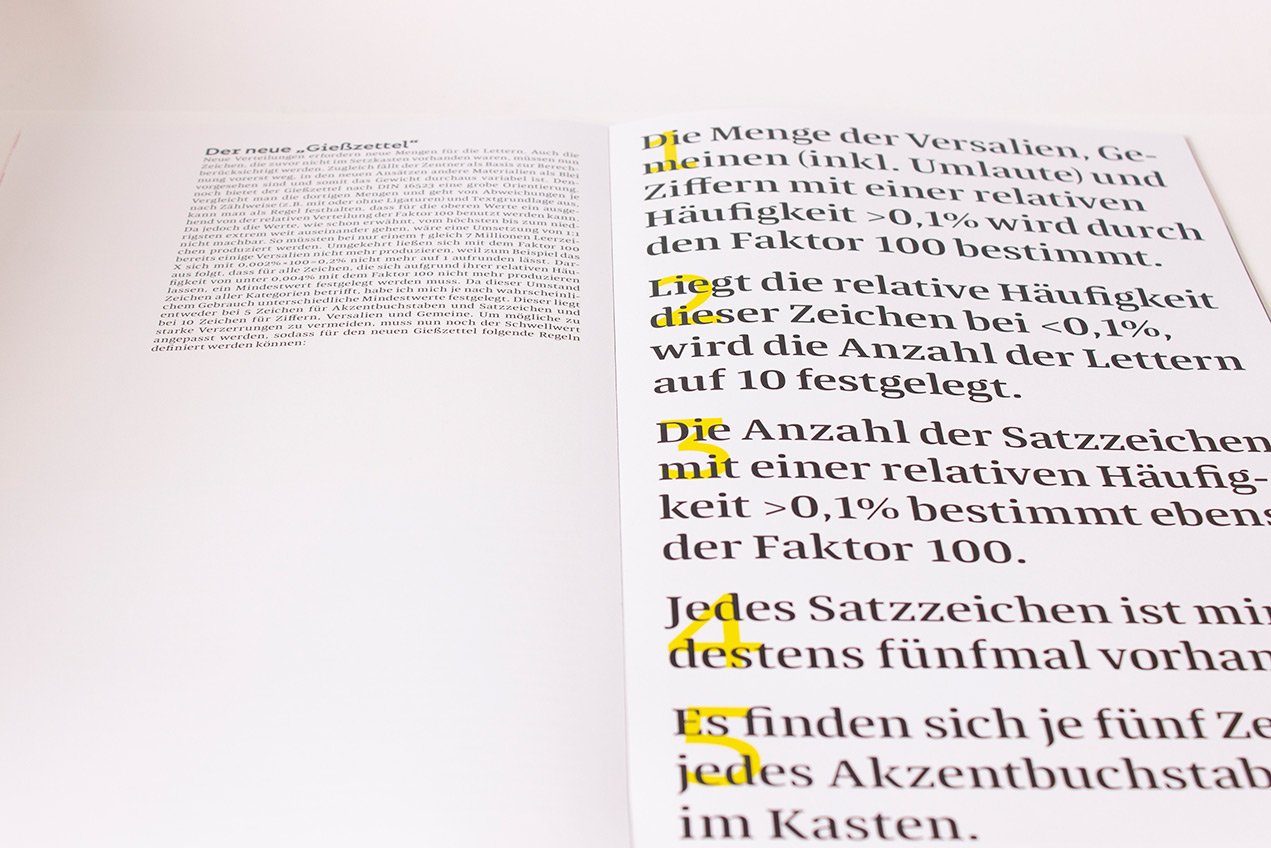 Der neue „Gießzettel“
Neue Verteilungen erfordern neue Mengen für die Lettern. Auch die
Zeichen, die zuvor nicht im Setzkasten vorhanden waren, müssen nun
berücksichtigt werden. Zugleich fällt der Zentner als Basis zur Berech-
nung vorerst weg, in den neuen Ansätzen andere Materialien als Blei
vorgesehen sind und somit das Gewicht durchaus variabel ist. Den-
noch bietet der Gießzettel nach DIN 16523 eine grobe Orientierung.
Vergleicht man die dortigen Mengen und geht von Abweichungen je
nach Zählweise (z.B. mit oder ohne Ligaturen) und Textgrundlage aus,
kann man als Regel festhalten, dass für die oberen Werte ein ausge-
hend von der relativen Verteilung der Faktor 100 benutzt werden kann.
Da jedoch die Werte, wie schon erwähnt, vom höchsten bis zum nied-
rigsten extrem weit auseinander gehen, wäre eine Umsetzung von 1:1
nicht machbar. So müssten bei nur einem † gleich 7 Millionen Leerzei-
chen produziert werden. Umgekehrt ließen sich mit dem Faktor 100
bereits einige Versalien nicht mehr produzieren, weil zum Beispiel das
X sich mit 0,002%×100=0,2% nicht mehr auf 1 aufrunden lässt. Dar-
aus folgt, dass für alle Zeichen, die sich aufgrund ihrer relativen Häu-
figkeit von unter 0,004% mit dem Faktor 100 nicht mehr produzieren
lassen, ein Mindestwert festgelegt werden muss. Da dieser Umstand
Zeichen aller Kategorien betrifft, habe ich mich je nach wahrscheinli-
chem Gebrauch unterschiedliche Mindestwerte festgelegt. Dieser liegt
entweder bei 5 Zeichen für Akzentbuchstaben und Satzzeichen und
bei 10 Zeichen für Ziffern, Versalien und Gemeine. Um mögliche zu
starke Verzerrungen zu vermeiden, muss nun noch der Schwellwert
angepasst werden, sodass für den neuen Gießzettel folgende Regeln
definiert werden können:
1
Die Menge der Versalien, Ge-
meinen (inkl. Umlaute) und
Ziffern mit einer relativen
Häufigkeit >0,1% wird durch
den Faktor 100 bestimmt.
2
Liegt die relative Häufigkeit
dieser Zeichen bei <0,1%,
wird die Anzahl der Lettern
auf 10 festgelegt.
3
Die Anzahl der Satzzeichen
mit einer relativen Häufig-
keit >0,1% bestimmt ebens
der Faktor 100.
4
Jedes Satzzeichen ist min
destens fünfmal vorhan
5
Es finden sich je fünf Ze
jedes Akzentbuchstab
im Kasten.